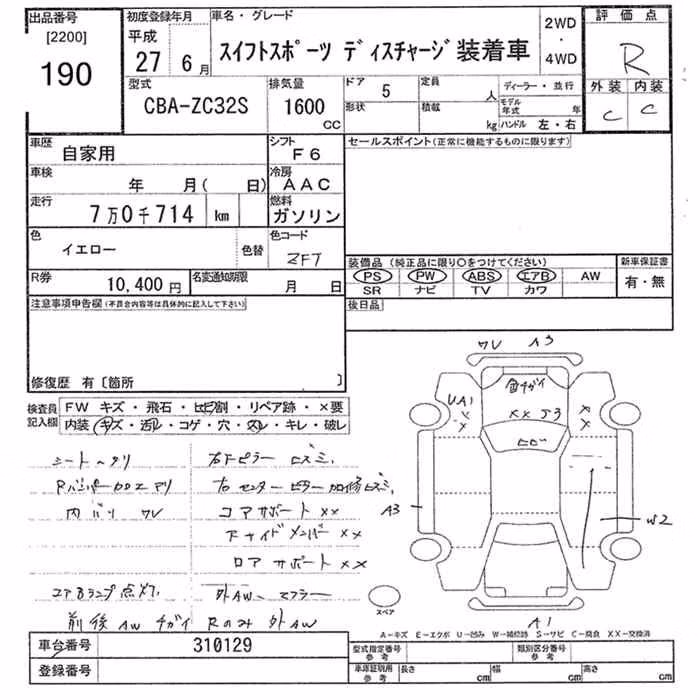 出品番号 初度登録年月 車名・グレード 2WD・4WD 評価点
[2200] 平成
190 27年 6月 スイフトスポーツ ディスチャージ装着車 R
型式 排気量 ドア 定員 ディーラー・並行 外装 内装
CBA-ZC32S 1600CC 5 人 モデル年式 年 C C
形状 積載 kg ハンドル 左・右
車歴 シフト セールスポイント(正常に機能するものに限ります)
自家用 F6
車検 冷房
年 月( 日) AAC
走行 燃料
7万0千714 km ガソリン
色 色コード
イエロー 色替 ZFT
装備品(純正品に限り○をつけてください) 新車保証書
PS PW ABS エアB AW 有・無
SR ナビ TV カワ
R券 名変通知期限
10,400円 月 日
後日品
注意事項申告欄(不具合内容等は具体的に記入して下さい)
修復歴 有〔箇所 〕
検査員記入欄 FW キズ・飛石・ヒビ割・リペア跡・×要
内装 キズ・汚レ・コゲ・穴・スレ・キレ・破レ
ワレ A3
色チガイ
UA1 XX J3
ヒビ
シートヘタリ 右Fピラー ヒズミ、
右センターピラー加修ヒズミ、
内バリ ワレ コアサポート XX
A3 W2
Fサイドメンバー XX
ロアサポート XX
エアBランプ点灯、 外AW、マフラー
スペア
前後AWチガイ Rのみ外AW
A1
A-キズ E-エクボ U-凹み W-補修跡 S-サビ C-腐食 XX-交換済
車台番号 310129
型式指定番号 参考 類別区分番号 参考
登録番号
車庫証明用 参考 長さ cm 幅 cm 高さ cm